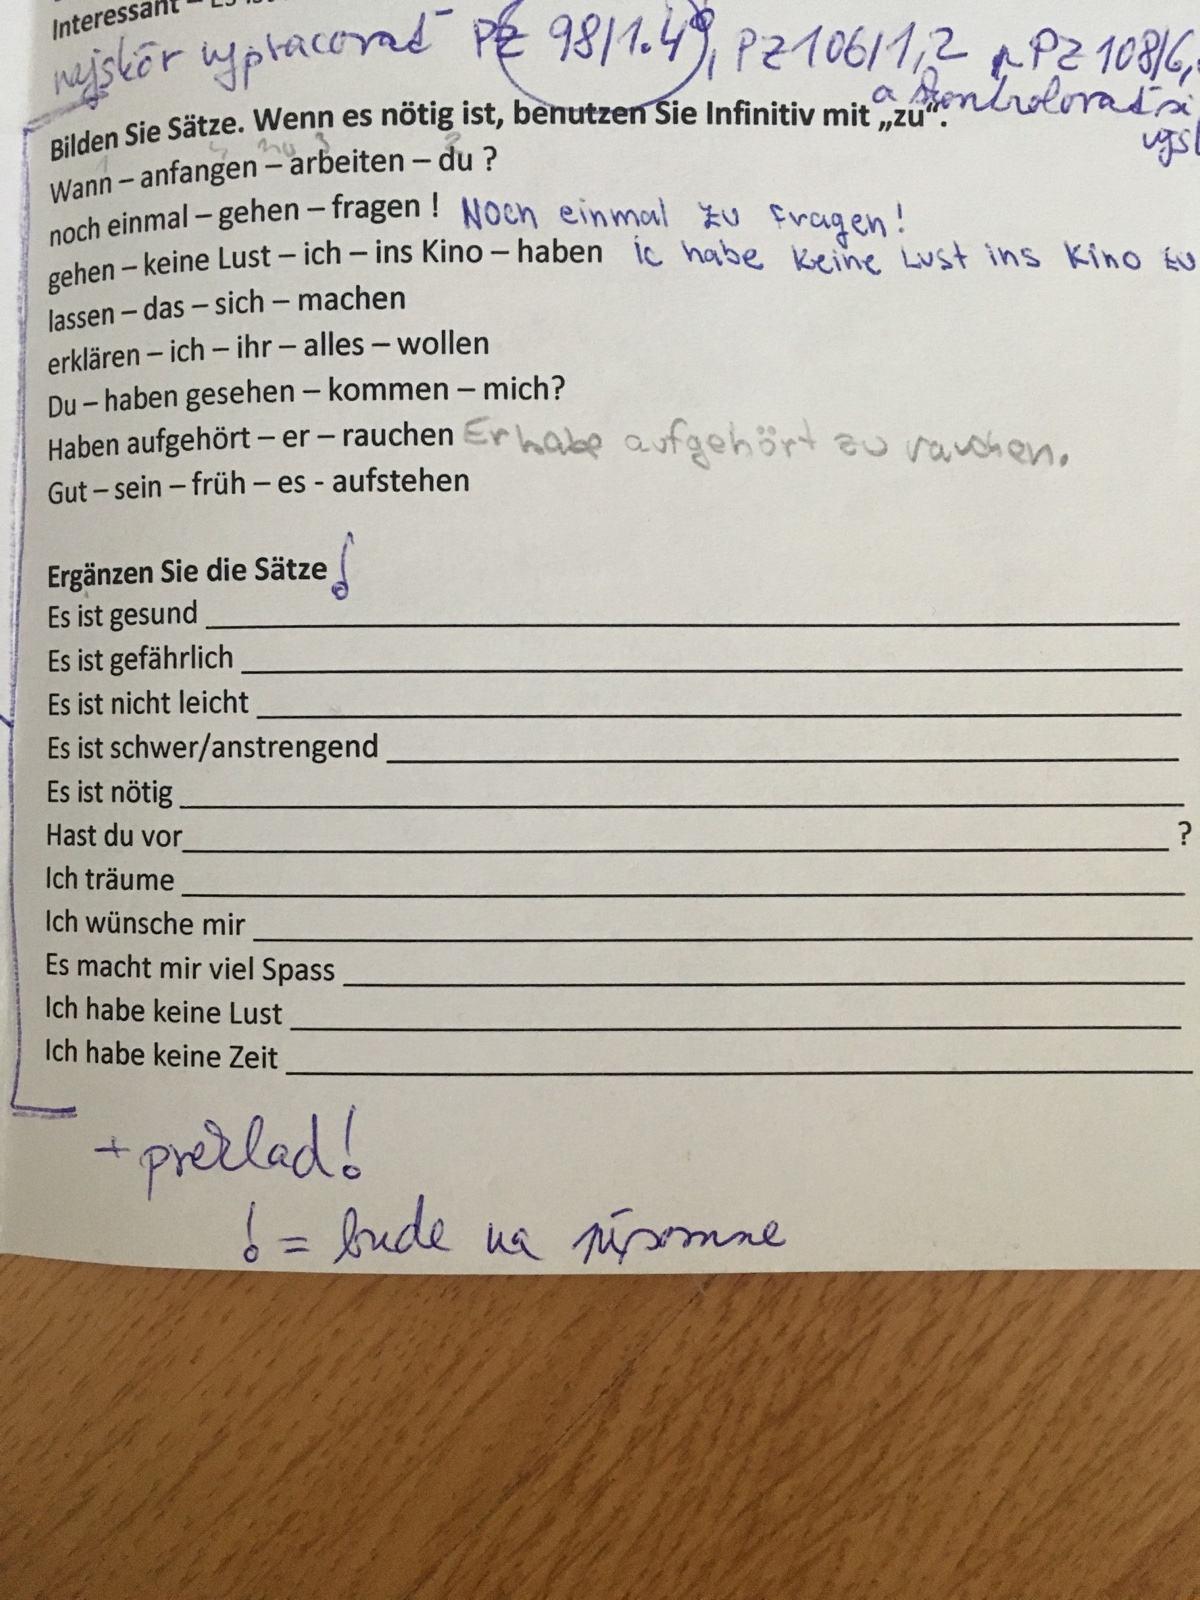 Interessant – Es ist
najskôr vypracovať PZ 98/1.4, PZ 106/1,2 PZ 108/6,
a skontrolovať si
Bilden Sie Sätze. Wenn es nötig ist, benutzen Sie Infinitiv mit „zu“.
Wann – anfangen – arbeiten – du ?
noch einmal – gehen – fragen ! Noch einmal zu fragen!
gehen – keine Lust – ich – ins Kino – haben ic habe keine Lust ins Kino zu
lassen – das – sich – machen
erklären – ich – ihr – alles – wollen
Du – haben gesehen – kommen – mich?
Haben aufgehört – er – rauchen Er habe aufgehört zu rauchen.
Gut – sein – früh – es - aufstehen
Ergänzen Sie die Sätze !
Es ist gesund
Es ist gefährlich
Es ist nicht leicht
Es ist schwer/anstrengend
Es ist nötig
Hast du vor ?
Ich träume
Ich wünsche mir
Es macht mir viel Spass
Ich habe keine Lust
Ich habe keine Zeit
+ preklad!
! = bude na písomne